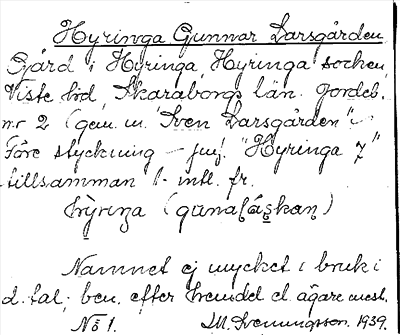 Hyringa Gunnar Larsgården
Gård i Hyringa, Hyringa socken,
Viste hrd, Skaraborgs län. Jordeb.
nr 2 (gem. m. "Sven Larsgården"-
Före styckning - jmf. "Hyringa 7"
tillsamman - intl. fr.
hy̆riŋa (gunaláskan)
Namnet ej mycket i bruk i
d. tal; ben. efter hemdel el. ägare mest.
No 1. M. Svenungsson. 1939.